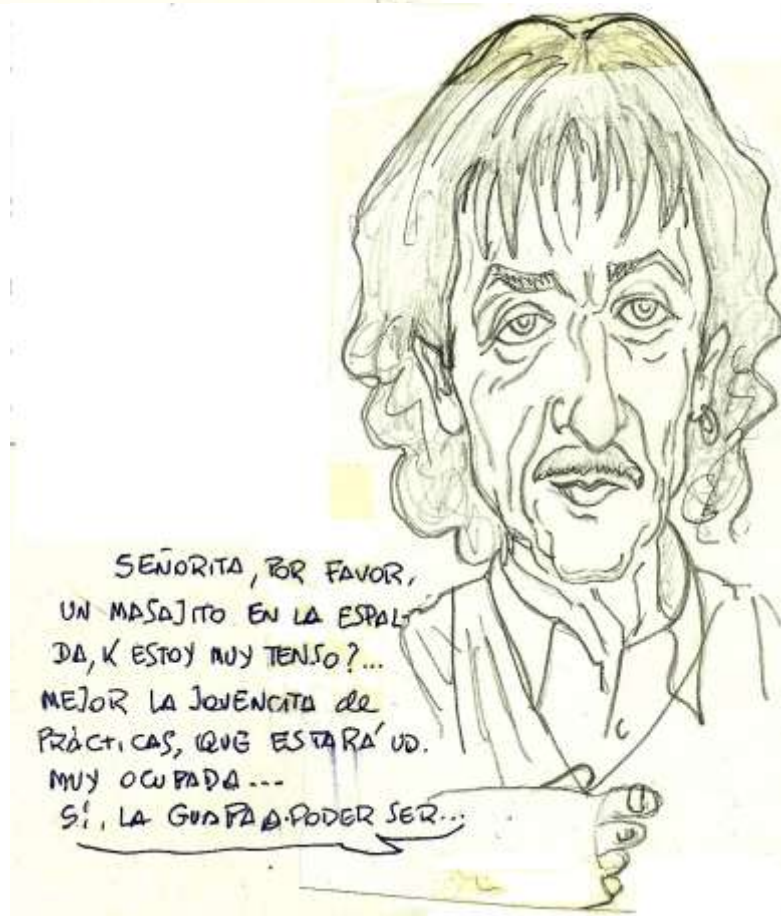 SEÑORITA, POR FAVOR,
UN MASAJITO EN LA ESPAL-
DA, K ESTOY MUY TENSO?...
MEJOR LA JOVENCITA de
PRÁCTICAS, QUE ESTARÁ UD.
MUY OCUPADA...
SÍ, LA GUAPA A PODER SER...